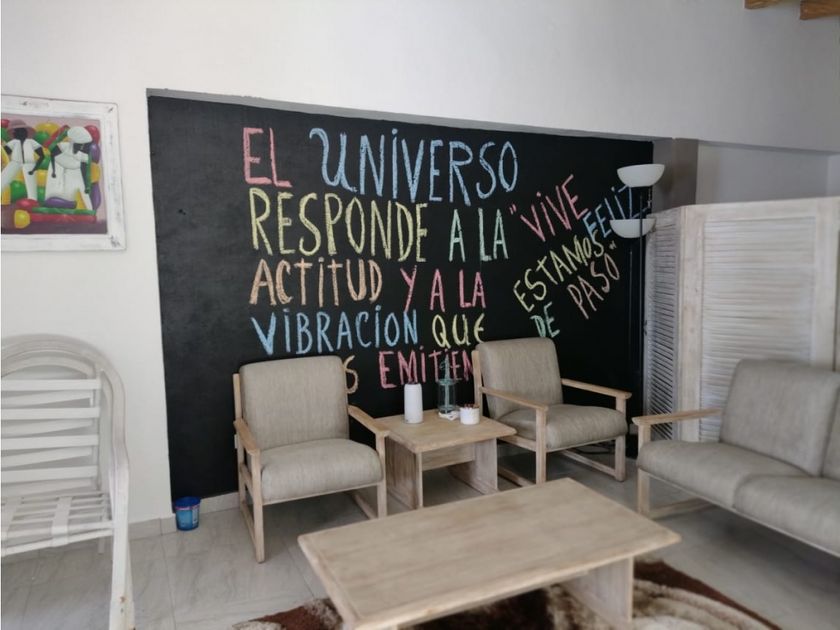 EL UNIVERSO
RESPONDE A LA
ACTITUD Y A LA
VIBRACION QUE
EMITIEN
"VIVE
FELIZ
ESTAMOS
DE PASO"